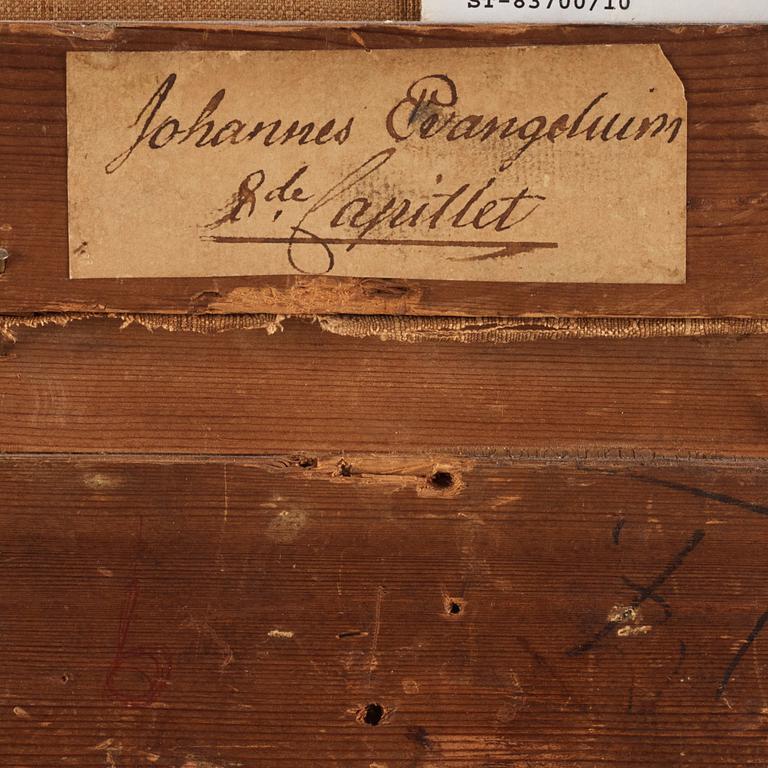 ST-83700/10
Johannes Evangeluim
8de Capittet
6